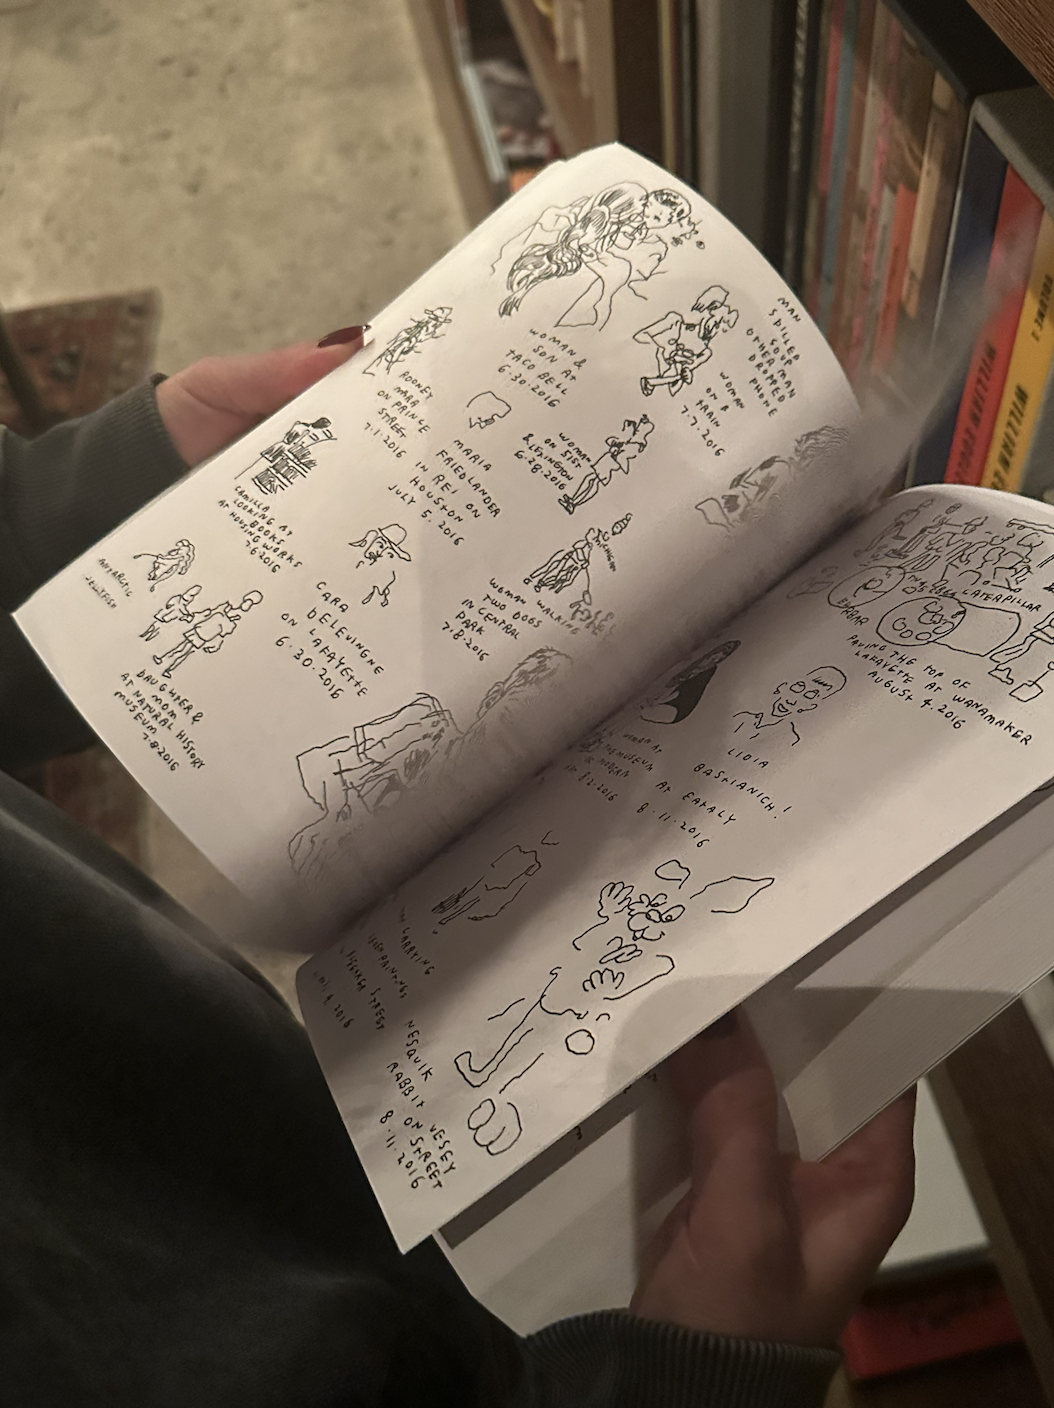 WOMAN &
SON AT
TACO BELL
6.30.2016
WOMAN
ON A
TRAIN
7.7.2016
MAN
SPILLED
SOUP
OTHER MAN
DROPPED
PHONE
ROONEY
MARA
ON PRINCE
STREET
7.1.2016
MARIA
FRIEDLANDER
IN REI ON
HOUSTON
JULY 5. 2016
WOMAN
ON 51ST
& LEXINGTON
6.28.2016
CAMILLA
LOOKING AT
BOOKS
AT HOUSING WORKS
7.6.2016
ANTARCTIC
JELLYFISH
DAUGHTER &
MOM
AT NATURAL HISTORY
MUSEUM
7.8.2016
CARA
DELEVINGNE
ON LAFAYETTE
6.30.2016
WOMAN WALKING
TWO DOGS
IN CENTRAL
PARK
7.8.2016
CATERPILLAR
PAVING THE TOP OF
LAFAYETTE AT WANAMAKER
AUGUST 4. 2016
LIDIA
BASTIANICH!
AT EATALY
8.11.2016
WOMAN AT
THE MUSEUM
MODERN
8.2.2016
CARRYING
PAINTINGS
STREET
2016
NESQUIK
RABBIT
ON VESEY
STREET
8.11.2016
WILLIEM
WILLEM
VOLUME I